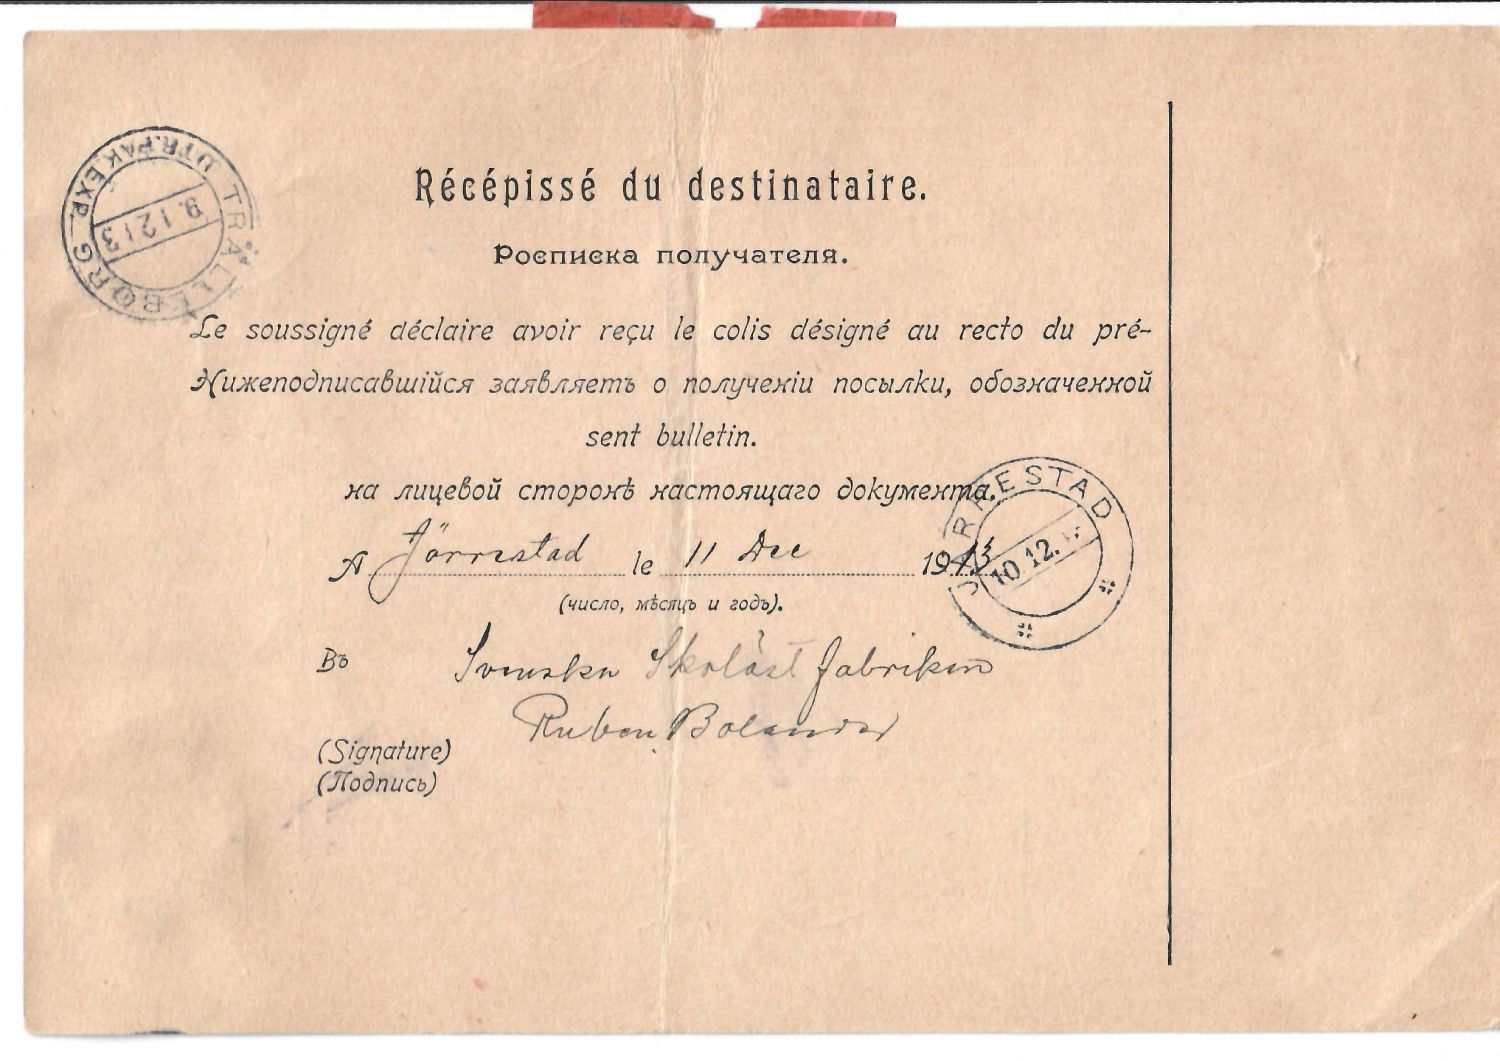 TRÄLLEBORG
UTR.PAK.EXP.
9.12.13
Récépissé du destinataire.
Росписка получателя.
Le soussigné déclaire avoir reçu le colis désigné au recto du pré-
Нижеподписавшійся заявляетъ о полученіи посылки, обозначенной
sent bulletin.
на лицевой сторонѣ настоящаго документа.
JÄRRESTAD
10.12.
A Järrestad le 11 Dec 1913
(число, мѣсяцъ и годъ).
Въ Svenska Skoläst fabriken
Ruben Bolander
(Signature)
(Подпись)